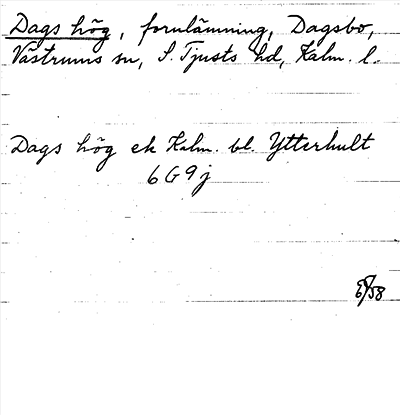 Dags hög, fornlämning, Dagsbo,
Västrums sn, S. Tjusts hd, Kalm. l.
Dags hög ek Kalm. bl. Ytterhult
6G9j